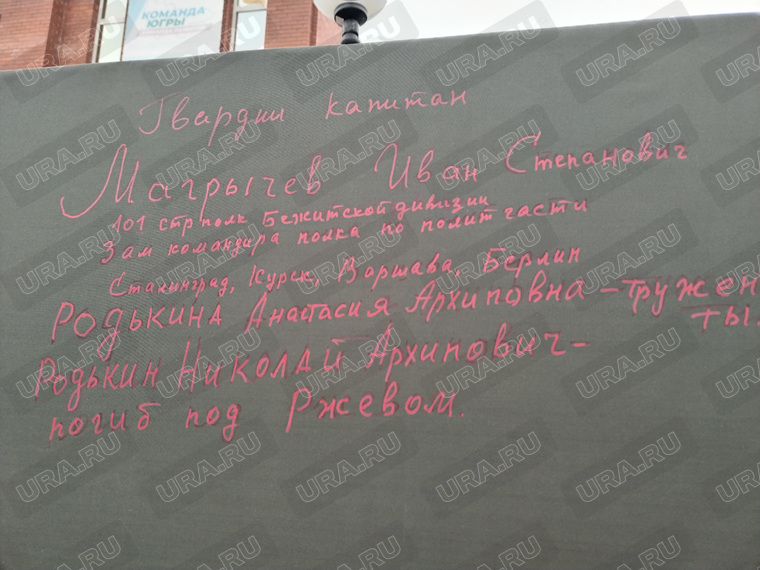 КОМАНДА
ЮГРЫ
Гвардии капитан
Магрычев Иван Степанович
101 стр полк Бежитской дивизии
Зам командира полка по полит части
Сталинград, Курск, Варшава, Берлин
Родькина Анастасия Архиповна – тружен
ты.
Родькин Николай Архипович –
погиб под Ржевом.
URA.RU